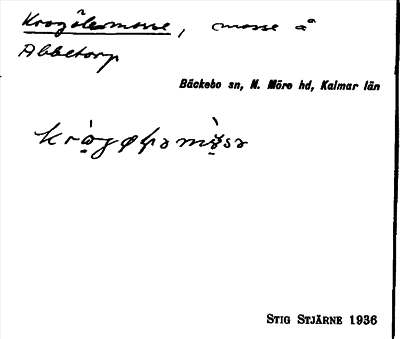 Krogölamosse, mosse å
Abbetorp
Bäckebo sn, N. Möre hd, Kalmar län
STIG STJÄRNE 1936